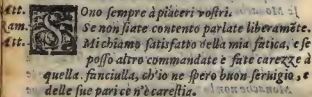 Att. SOno sempre à piaceri vostri.
Lam. Se non siate contento parlate liberamēte.
Att. Mi chiamo satisfatto della mia fatica, e se
posso altro commandate e fate carezze à
quella. fanciulla, ch'io ne spero buon seruigio, e
delle sue pari cè n'è carestia.